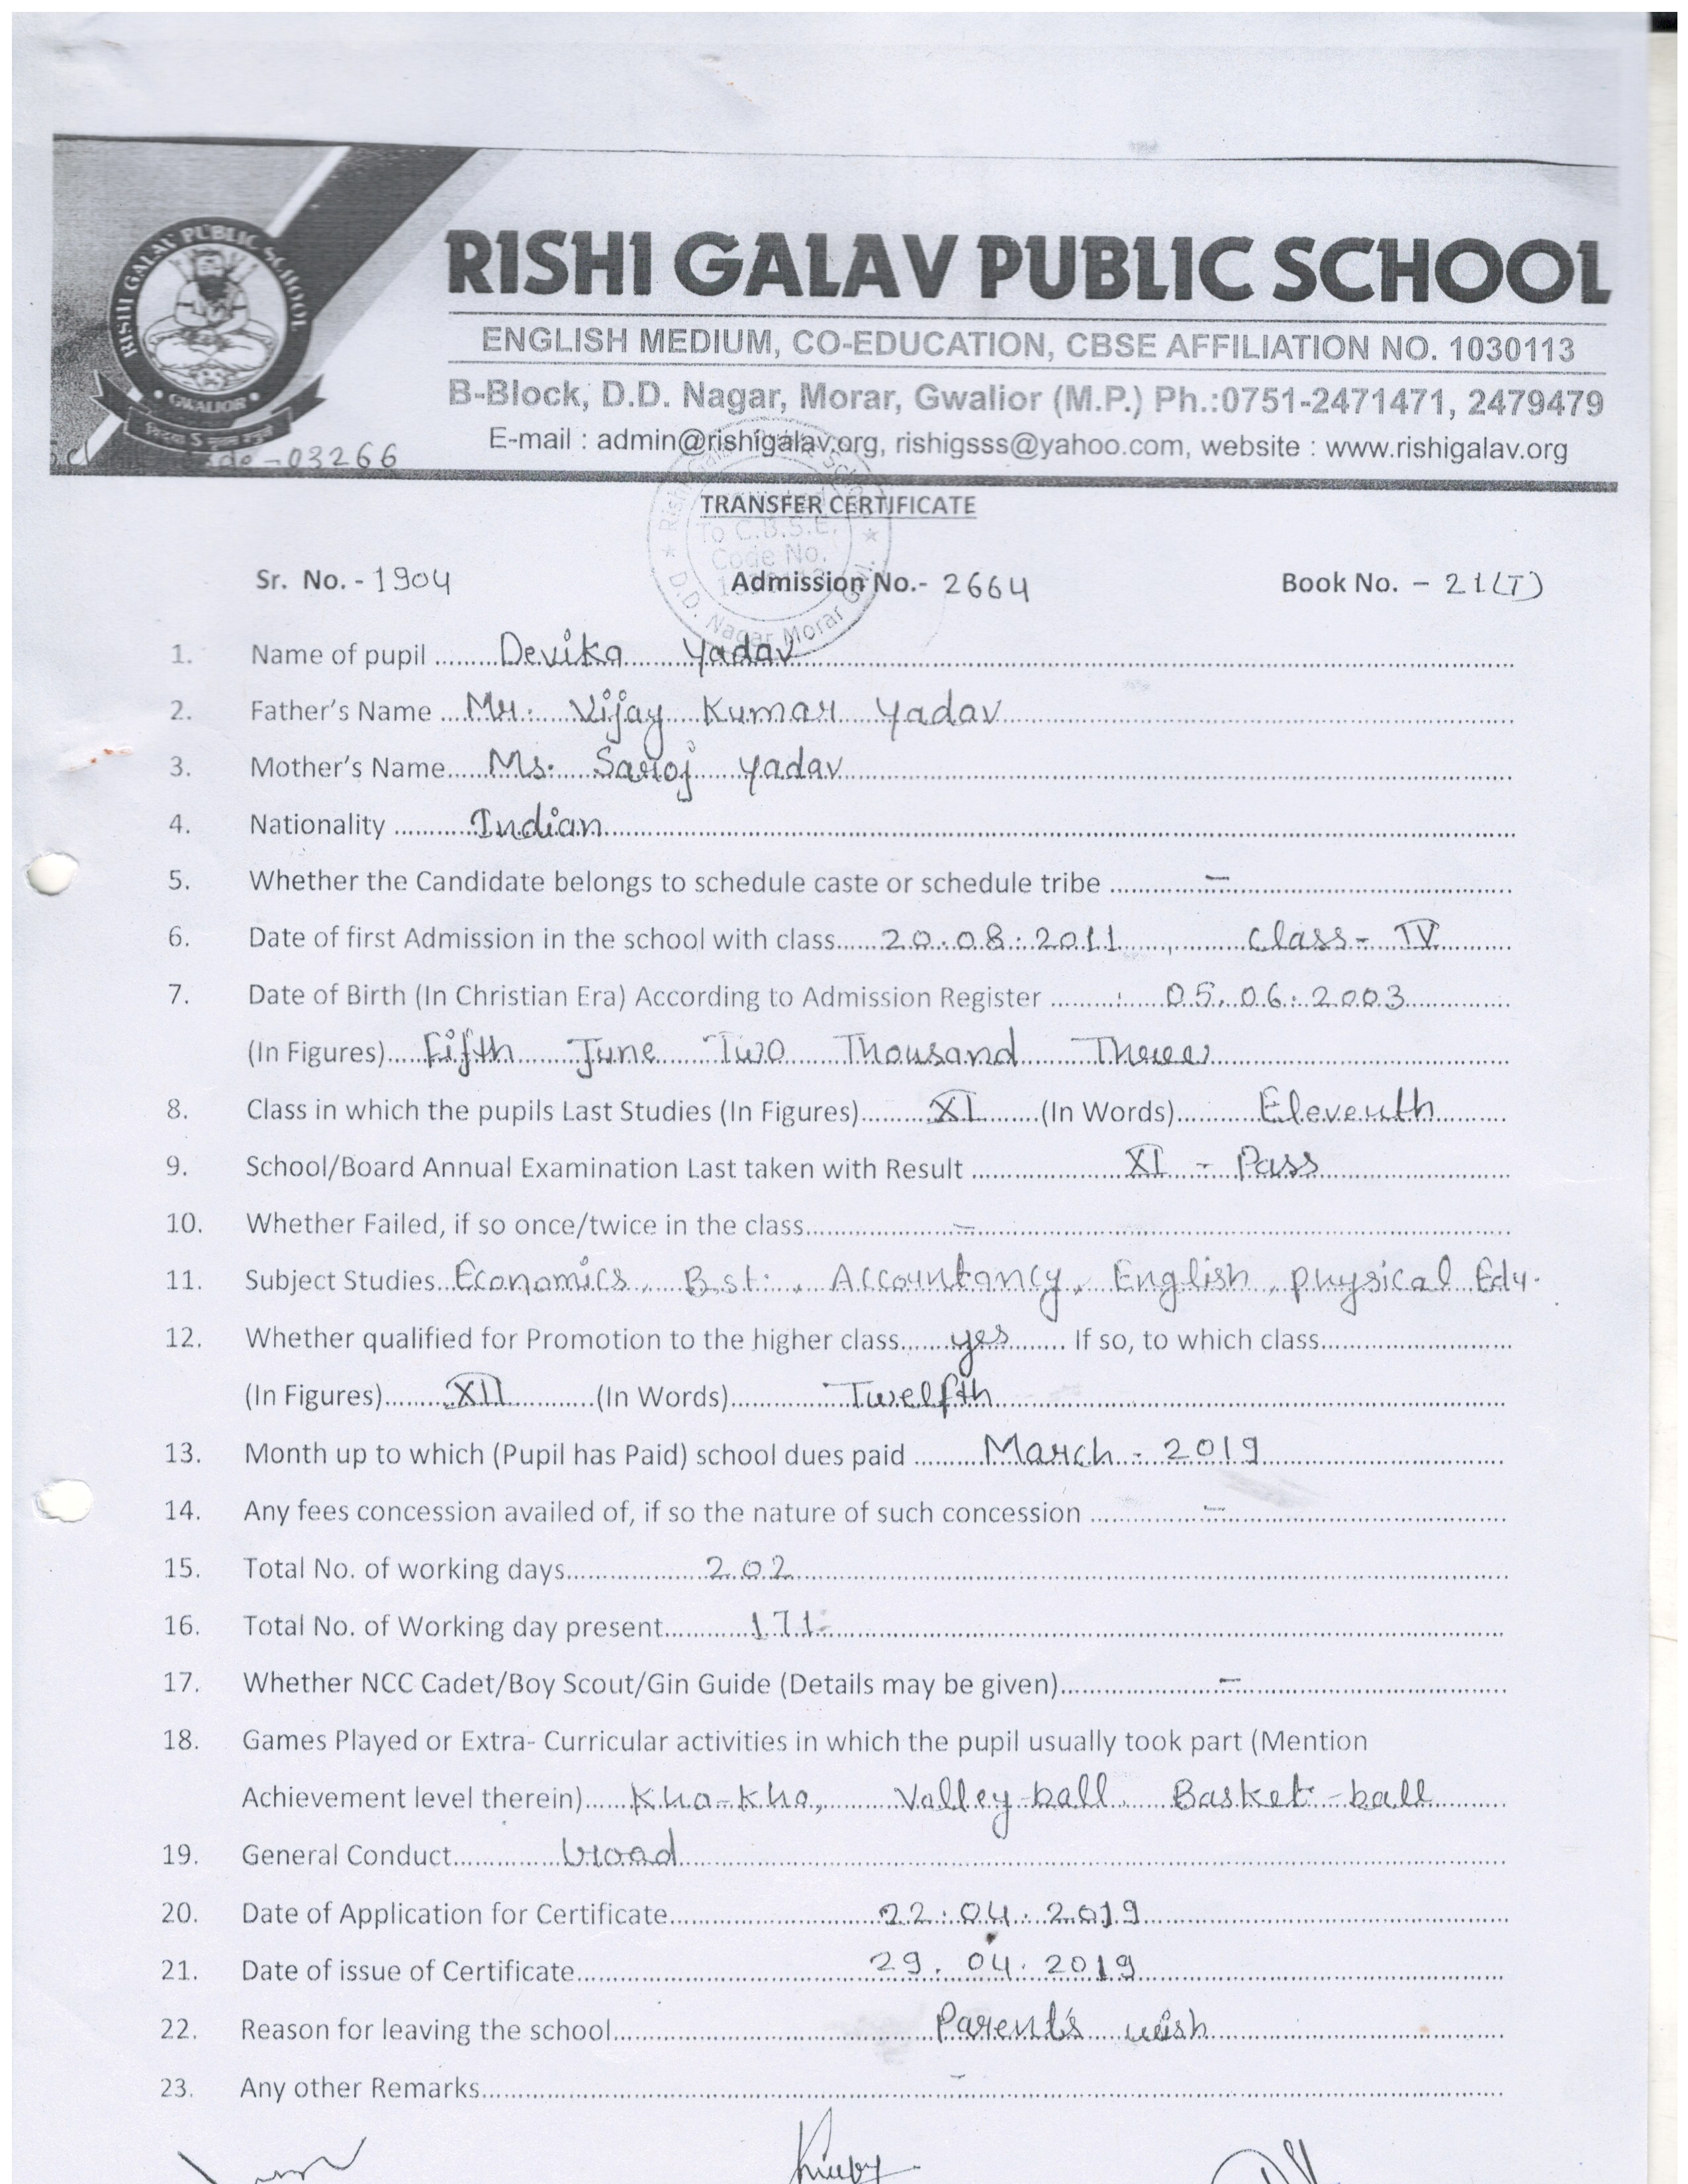 RISHI GALAV PUBLIC SCHOOL
GWALIOR
RISHI GALAV PUBLIC SCHOOL
ENGLISH MEDIUM, CO-EDUCATION, CBSE AFFILIATION NO. 1030113
B-Block, D.D. Nagar, Morar, Gwalior (M.P.) Ph.:0751-2471471, 2479479
E-mail : admin@rishigalav.org, rishigsss@yahoo.com, website : www.rishigalav.org
-03266
TRANSFER CERTIFICATE
To C.B.S.E.
Code No.
D.D. Nagar Morar
Sr. No. - 1904 Admission No.- 2664 Book No. - 21(T)
1. Name of pupil ........Devika Yadav
2. Father's Name ....Mr. Vijay Kumar Yadav
3. Mother's Name......Ms. Saroj Yadav
4. Nationality ...........Indian
5. Whether the Candidate belongs to schedule caste or schedule tribe ............-
6. Date of first Admission in the school with class......20.08.2011, Class- IV
7. Date of Birth (In Christian Era) According to Admission Register ..........05.06.2003
(In Figures).....Fifth June Two Thousand Three
8. Class in which the pupils Last Studies (In Figures)........XI.......(In Words)........Eleventh
9. School/Board Annual Examination Last taken with Result ..................XI - Pass
10. Whether Failed, if so once/twice in the class..................-
11. Subject Studies..Economics, B.st., Accountancy, English, physical Edu.
12. Whether qualified for Promotion to the higher class......yes....... If so, to which class......................
(In Figures)........XII...........(In Words)...........Twelfth
13. Month up to which (Pupil has Paid) school dues paid .........March - 2019
14. Any fees concession availed of, if so the nature of such concession ..............-
15. Total No. of working days.................202
16. Total No. of Working day present...........171
17. Whether NCC Cadet/Boy Scout/Gin Guide (Details may be given)....................-
18. Games Played or Extra- Curricular activities in which the pupil usually took part (Mention
Achievement level therein)......Kho-Kho, Valley-ball, Basket-ball
19. General Conduct.............Good
20. Date of Application for Certificate.........................22.04.2019
21. Date of issue of Certificate...................................29.04.2019
22. Reason for leaving the school..................................Parent's wish
23. Any other Remarks..................................................-